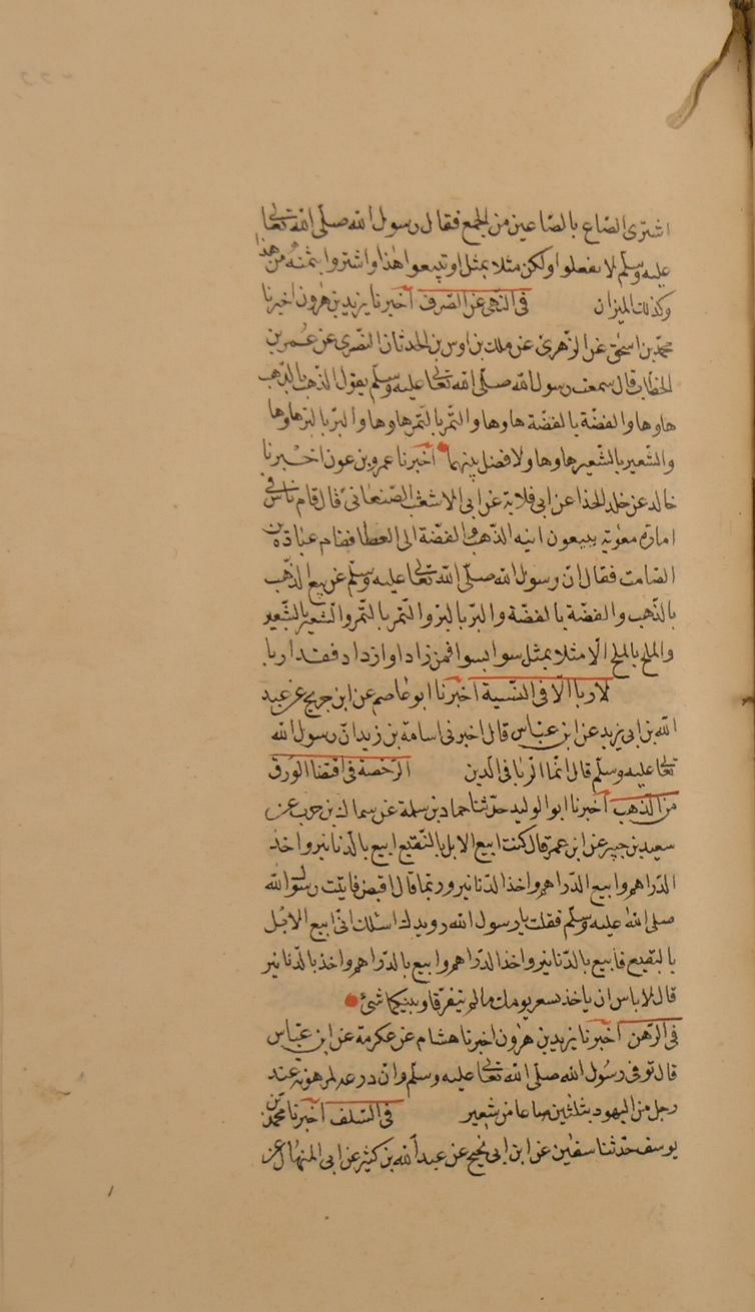 اشترى الصّاع بالصّاعين من الجمع فقال رسول الله صلّى الله تعالى
عليه وسلّم لا تفعلوا ولكن مثلا بمثل او تبيعوا هٰذا واشتروا بثمنه من هذا
وكذلك الميزان في النّهى عن الصّرف أخبرنا يزيد بن هٰرون اخبرنا
محمّد بن اسحٰق عن الزّهرىّ عن ملك بن اوس بن الحدثان النّصرى عن عمر بن
الخطاب قال سمعت رسول الله صلّى الله تعالى عليه وسلّم يقول الذّهب بالذّهب
هاوها والفضّة بالفضّة هاوها والتّمر بالتّمر هاوها والبرّ بالبرّ هاوها
والشّعير بالشّعير هاوها ولا فضل بينهما أخبرنا عمرو بن عون اخبرنا
خالد عن خلد الحذا عن ابى قلابة عن ابى الاشعث الصّنعانى قال قام ناس فى
امارة معٰوية يبيعون انيه الذّهب والفضّة الى العطا فقام عبادة بن
الصّامت فقال انّ رسول الله صلّى الله تعالى عليه وسلّم عن بيع الذّهب
بالذّهب والفضّة بالفضّة والبرّ بالبرّ والتّمر بالتّمر والشّعير بالشّعير
والملح بالملح الّا مثلا بمثل سوا بسوا فمن زاد او ازداد فقد اربا
لا ربا الّا فى النّسية أخبرنا ابو عاصم عن ابن جريج عن عبيد
الله بن ابى يزيد عن ابن عبّاس قال اخبرنى اسامة بن زيد انّ رسول الله
تعالى عليه وسلّم قال انّما الرّبا فى الدّين الرّخصة فى اقتضا الورق
من الذّهب أخبرنا ابو الوليد حدّثنا حماد بن سلمة عن سماك بن حرب عن
سعيد بن جبير عن ابن عمر قال كنت ابيع الابل بالنّقيع ابيع بالدّنانير واخذ
الدّراهم وابيع الدّراهم واخذ الدّنانير وربّما قال اقبض فايتت رسول الله
صلى الله عليه وسلّم فقلت يا رسول الله رويدك اسئلك انّى ابيع الابل
بالبقيع فابيع بالدّنانير واخذ الدّراهم وابيع بالدّراهم واخذ بالدّنانير
قال لا باس ان ياخذ بسعر يومك مالم يتفرقا وبينكما شئ
فى الرّهن أخبرنا يزيد بن هٰرون اخبرنا هشام عن عكرمة عن ابن عبّاس
قال توفى رسول الله صلى الله تعالى عليه وسلّم وانّ درعه لمرهونة عند
رجل من اليهود بثلثين صاعا من شعير فى السّلف أخبرنا محمّد بن
يوسف حدّثنا سفيٰن عن ابن ابى نجيح عن عبد الله بن كثير عن ابى المنهال عن